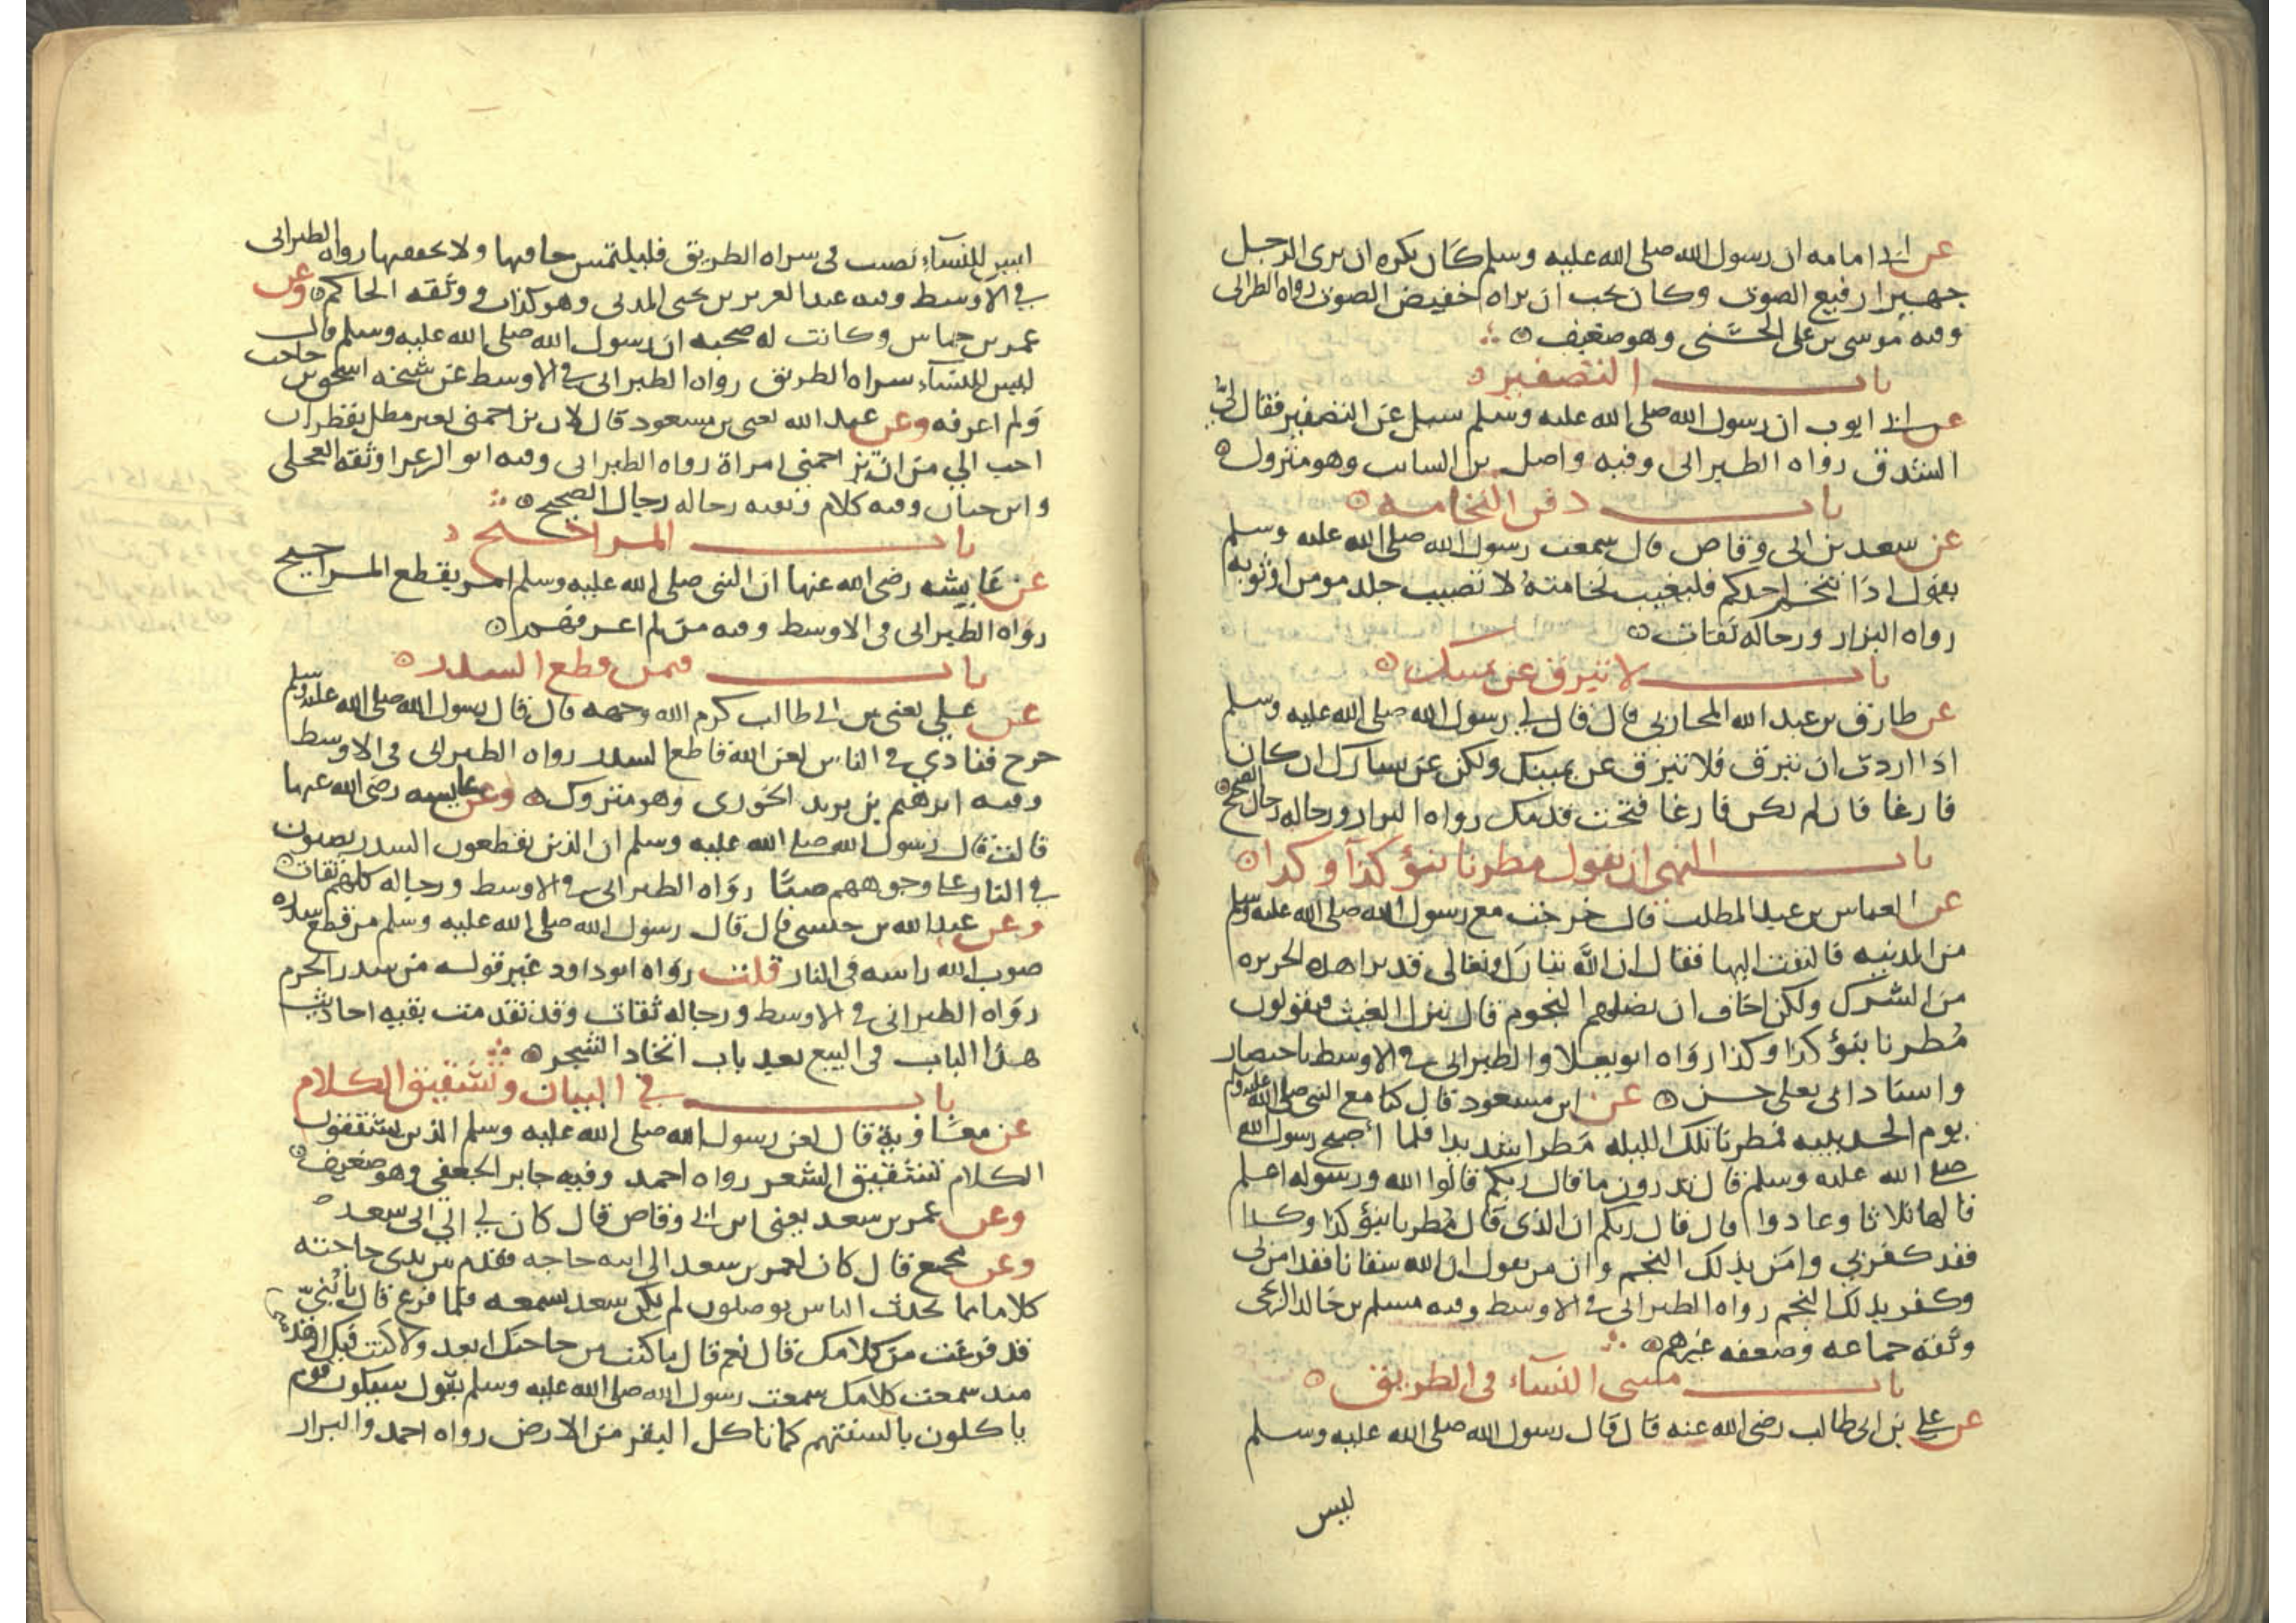 عن ابي امامه ان رسول الله صلى الله عليه وسلم كان يكره ان يرى الرجل
جهيرا رفيع الصوت وكان يحب ان يراه خفيض الصوت رواه الطبراني
وفيه موسى بن علي الخشني وهو ضعيف
باب التصفير
عن ابي ايوب ان رسول الله صلى الله عليه وسلم سيل عن التصفير فقال
الشدق رواه الطبراني وفيه واصل بن السايب وهو متروك
باب دفن النخامه
عن سعد بن ابي وقاص قال سمعت رسول الله صلى الله عليه وسلم
يقول اذا تنخم احدكم فليغيب نخامته لا تصيب جلد مومن او ثوبه
رواه البزار ورجاله ثقات
باب لا تبزق عن يمينك
عن طارق بن عبد الله المحاربي قال قال لي رسول الله صلى الله عليه وسلم
اذا اردت ان تبزق فلا تبزق عن يمينك ولكن عن يسارك ان كان
فارغا فان لم يكن فارغا فتحت قدمك رواه البزار ورجاله رجال الصحيح
باب النهي ان يقول مطرنا بنؤ كذا وكذا
عن العباس بن عبد المطلب قال خرجت مع رسول الله صلى الله عليه وسلم
من المدينه فالتفت اليها فقال ان الله تبارك وتعالى قد برا هذه الجزيره
من الشرك ولكن اخاف ان تضلهم النجوم قال ينزل الغيث فيقولون
مُطرنا بنؤ كذا وكذا رواه ابو يعلا والطبراني في الاوسط باختصار
واسناد ابي يعلى حسن عن ابن مسعود قال كنا مع النبي صلى الله عليه وسلم
يوم الحديبيه فمطرنا تلك الليله مطرا شديدا فلما اصبح رسول الله
صلى الله عليه وسلم قال تدرون ما قال ربكم قالوا الله ورسوله اعلم
قالها ثلاثا وعادوا قال قال ربكم ان الذي قال مُطرنا بنؤ كذا وكذا
فقد كفر بي وامن بذلك النجم وان من يقول ان الله سقانا فقد امن بي
وكفر بذلك النجم رواه الطبراني في الاوسط وفيه مسلم بن خالد الزنجي
وثقه جماعه وضعفه غيرهم
باب مشي النسآء في الطريق
عن علي بن ابي طالب رضي الله عنه قال قال رسول الله صلى الله عليه وسلم
ليس
ليس للنسآء نصيب في سراه الطريق فليلتمس حافيها ولا رواه الطبراني
في الاوسط وفيه عبد العزيز بن يحيى المدني وهو كذاب ووثقه الحاكم وعن
عمر بن حماس وكانت له صحبه ان رسول الله صلى الله عليه وسلم قال
ليس للنسآء سراه الطريق رواه الطبراني في الاوسط عن شيخه اسحق بن
ولم اعرفه وعن عبد الله يعني بن مسعود قال لان يزاحمني بعير مطلي بقطران
احب الي من ان تزاحمني امراة رواه الطبراني وفيه ابو الزعرا وثقه العجلي
وابن حبان وفيه كلام وبقيه رجاله رجال الصحيح
باب المراجيح
عن عايشه رضي الله عنها ان النبي صلى الله عليه وسلم امر بقطع المراجيح
رواه الطبراني في الاوسط وفيه من لم اعرفهم
باب فيمن قطع السدر
عن علي يعني بن ابي طالب كرم الله وجهه قال قال رسول الله صلى الله عليه وسلم
خرج فنادي في الناس لعن الله قاطع السدر رواه الطبراني في الاوسط
وفيه ابرهيم بن يزيد الخوزي وهو متروك وعن عايشه رضي الله عنها
قالت قال رسول الله صلى الله عليه وسلم ان الذين يقطعون السدر يصبون
في النار على وجوههم صبّا رواه الطبراني في الاوسط ورجاله كلهم ثقات
وعن عبد الله بن حبشي قال قال رسول الله صلى الله عليه وسلم من قطع سدره
صوب الله راسه في النار قلت رواه ابو داود غير قوله من سدر الحرم
رواه الطبراني في الاوسط ورجاله ثقات وقد تقدمت بقيه احاديث
هذا الباب في البيع بعد باب اتخاذ الشجر
باب في البيان وتشقيق الكلام
عن معاوية قال لعن رسول الله صلى الله عليه وسلم الذين يشققون
الكلام تشقيق الشعر رواه احمد وفيه جابر الجعفي وهو ضعيف
وعن عمر بن سعد يعني ابن ابي وقاص قال كان لي الي ابي سعد
وعن مجمع قال كان لعمر بن سعد الى ابيه حاجه فقدم بين يدي حاجته
كلاما مما يحدث الناس يوصلون لم يكن سعد يسمعه فلما فرغ قال يا بُني
قد فرغت من كلامك قال نعم قال ما كنت من حاجتك ابعد ولا كنت فيك ازهد
منذ سمعت كلامك سمعت رسول الله صلى الله عليه وسلم يقول سيكون قوم
ياكلون بالسنتهم كما تاكل البقر من الارض رواه احمد والبزار